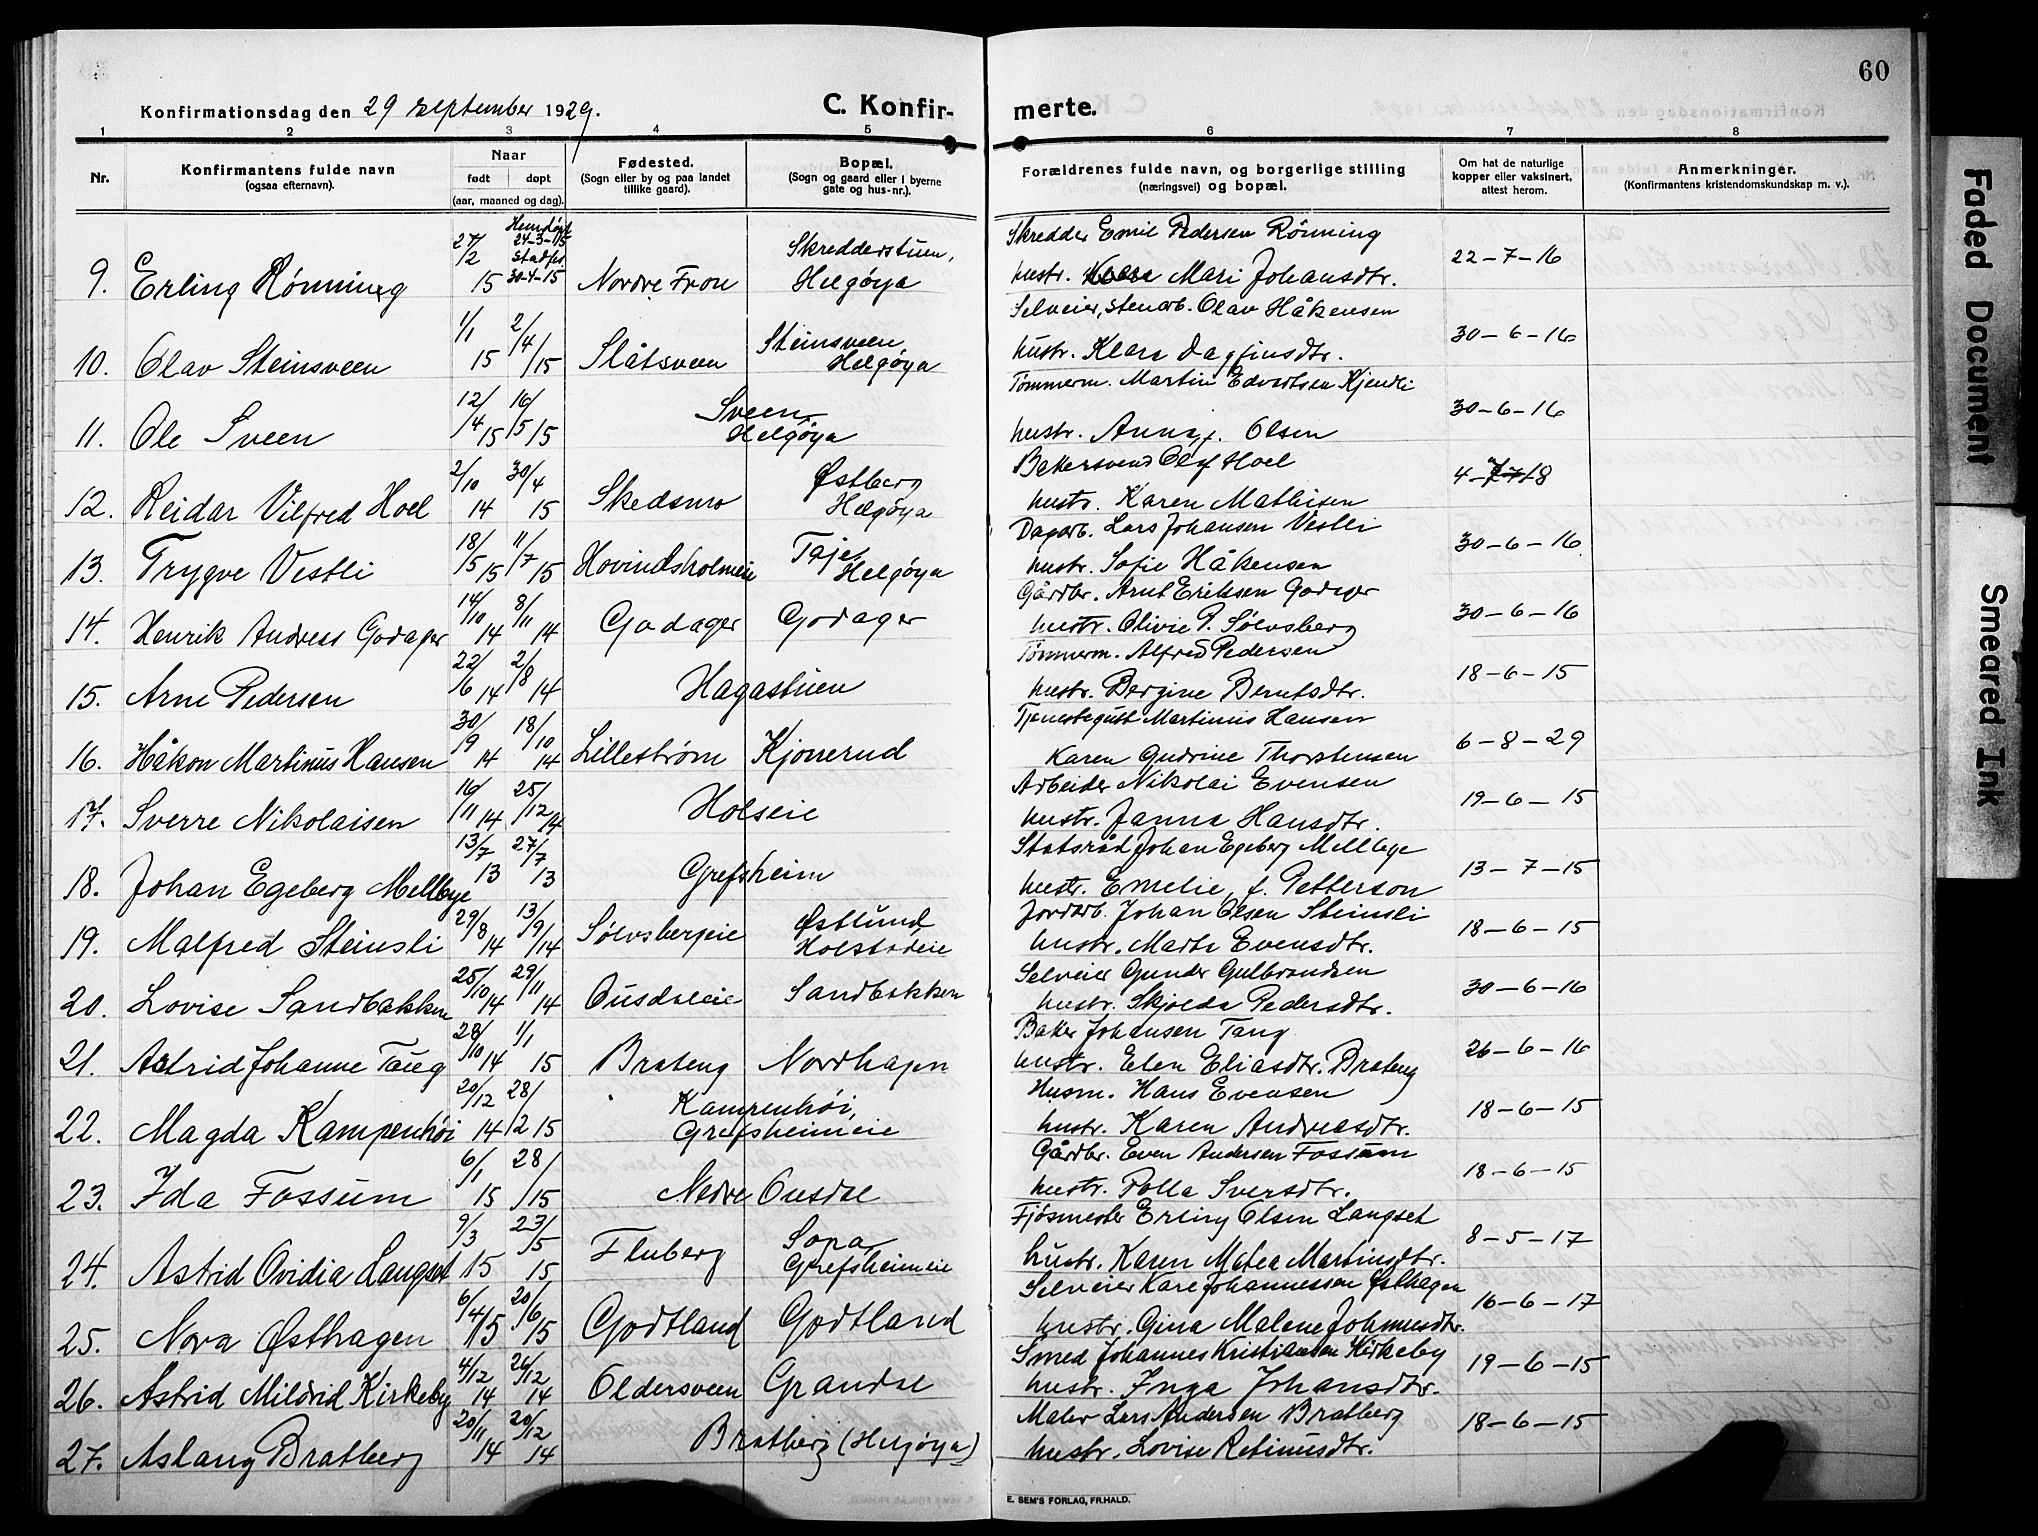 60
Konfirmationsdag den 29 september 1929.
C. Konfirmerte.
1 2 3 4 5 6 7 8
Nr.
Konfirmantens fulde navn
(ogsaa efternavn).
Naar
født døpt
(aar, maaned og dag).
Fødested.
(Sogn eller by og paa landet
tillike gaard).
Bopæl.
(Sogn og gaard eller i byerne
gate og hus-nr.).
Forældrenes fulde navn, og borgerlige stilling
(næringsvei) og bopæl.
Om hat de naturlige
kopper eller vaksinert,
attest herom.
Anmerkninger.
(Konfirmantens kristendomskundskap m. v.).
Hjemdøpt 24-3-15 Stadf. 30-4-15
9. Erling Rønning 27/2 15 Nordre Fron Skredderstuen, Helgøya
Skredder Emil Pedersen Rönning
hustr. Mari Johansdtr. 22-7-16
10. Olav Steinsveen 1/1 15 2/4 15 Slåtsveen Steinsveen Helgøya
Selveier, stenarb. Olav Håkensen
hustr. Klara Dagfinsdtr. 30-6-16
11. Ole Sveen 12/4 15 16/5 15 Sveen Helgøya
Tømmerm. Martin Edvartsen Kjendli
hustr. Anna f. Olsen 30-6-16
12. Reidar Vilfred Hoel 2/10 14 30/4 15 Skedsmo Østberg Helgøya
Bakersvend Olaf Hoel
hustr. Karen Mathisen
13. Trygve Vestli 18/5 15 11/7 15 Hovindsholmeie Taje Helgøya
Dagarb. Lars Johansen Vestli
hustr. Sofie Håkensen 30-6-16
14. Henrik Andreas Godager 14/10 14 8/11 14 Godager Godager
Gårdbr. Arnt Eriksen Godager
hustr. Olivie P. Sölvsberg 30-6-16
15. Arne Pedersen 22/6 14 2/8 14 Hagastuen
Tømmerm. Alfred Pedersen
hustr. Bergine Berntsdtr. 18-6-15
16. Håkon Martinus Hansen 30/9 14 18/10 14 Lillestrøm Kjonerud
Tjenestegutt Martinus Hansen
Karen Gudrine Thorstensen 6-8-29
17. Sverre Nikolaisen 16/11 14 25/12 14 Holseie
Arbeider Nikolai Evensen
hustr. Janna Hansdtr. 19-6-15
18. Johan Egeberg Mellbye 13/7 13 27/7 13 Grefsheim
Statsråd Johan Egeberg Mellbye
hustr. Emelie, f. Petterson 13-7-15
19. Malfred Steinsli 29/8 14 13/9 14 Sølvsbergeie Østlund Holstadeie
Jordarb. Johan Olsen Steinsli
hustr. Marte Evensdtr. 18-6-15
20. Lovise Sandbakken 25/10 14 29/11 14 Ousdaleie Sandbakken
Selveier Gunder Gulbrandsen
hustr. Skjolda Pedersdtr. 30-6-16
21. Astrid Johanne Taug 28/10 14 1/1 15 Brateng Nordhagen
Baker Johansen Tang
hustr. Elen Eliasdtr. Brateng 26-6-16
22. Magda Kampenhöi 20/12 14 28/2 15 Kampenhöi, Grefsheimeie
Husm. Hans Evensen
hustr. Karen Andreasdtr. 18-6-15
23. Ida Fossum 6/1 15 28/ 15 Nedre Ousdal
Gårdbr. Even Andersen Fossum
hustr. Polla Sversdtr. 18-6-15
24. Astrid Ovidia Langset 9/3 15 23/5 15 Fluberg Sopa Grefsheimeie
Fjøsmester Erling Olsen Langset
hustr. Karen Matea Martinsdtr. 8-5-17
25. Nora Østhagen 6/4 15 20/6 15 Godtland Godtland
Selveier Kare Johannessen Østhagen
hustr. Gina Malene Johannesdtr. 16-6-17
26. Astrid Mildrid Kirkeby 4/12 14 26/12 14 Oldersveen Grandal
Smed Johannes Kristiansen Kirkeby
hustr. Inga Johansdtr. 19-6-15
27. Aslaug Bratberg 20/11 14 20/12 14 Bratberg (Helgøya)
Maler Lars Andersen Bratberg
hustr. Lovise Retinusdtr. 18-6-15
E. SEM'S FORLAG, FR.HALD.
Faded Document
Smeared Ink